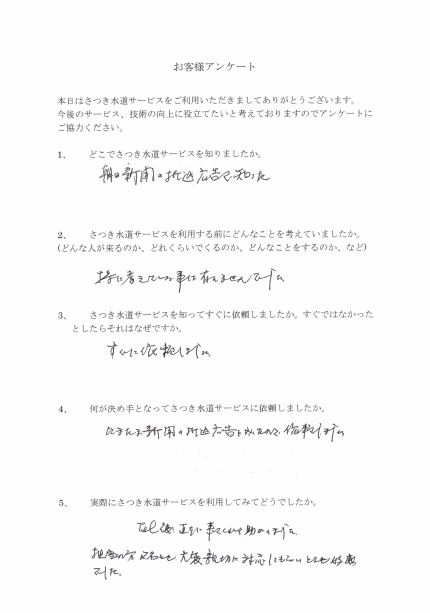 お客様アンケート
本日はさつき水道サービスをご利用いただきましてありがとうございます。
今後のサービス、技術の向上に役立てたいと考えておりますのでアンケートに
ご協力ください。
1、 どこでさつき水道サービスを知りましたか。
朝日新聞の折込広告で知った
2、 さつき水道サービスを利用する前にどんなことを考えていましたか。
(どんな人が来るのか、どれくらいでくるのか、どんなことをするのか、など)
特に考えていた事は有りませんでした
3、 さつき水道サービスを知ってすぐに依頼しましたか。すぐではなかった
としたらそれはなぜですか。
すぐに依頼しました
4、 何が決め手となってさつき水道サービスに依頼しましたか。
たまたま新聞の折込広告を 依頼しました
5、 実際にさつき水道サービスを利用してみてどうでしたか。
直ぐに来てくれて助かりました
担当の方 大変親切に対応してもらいとても
でした。